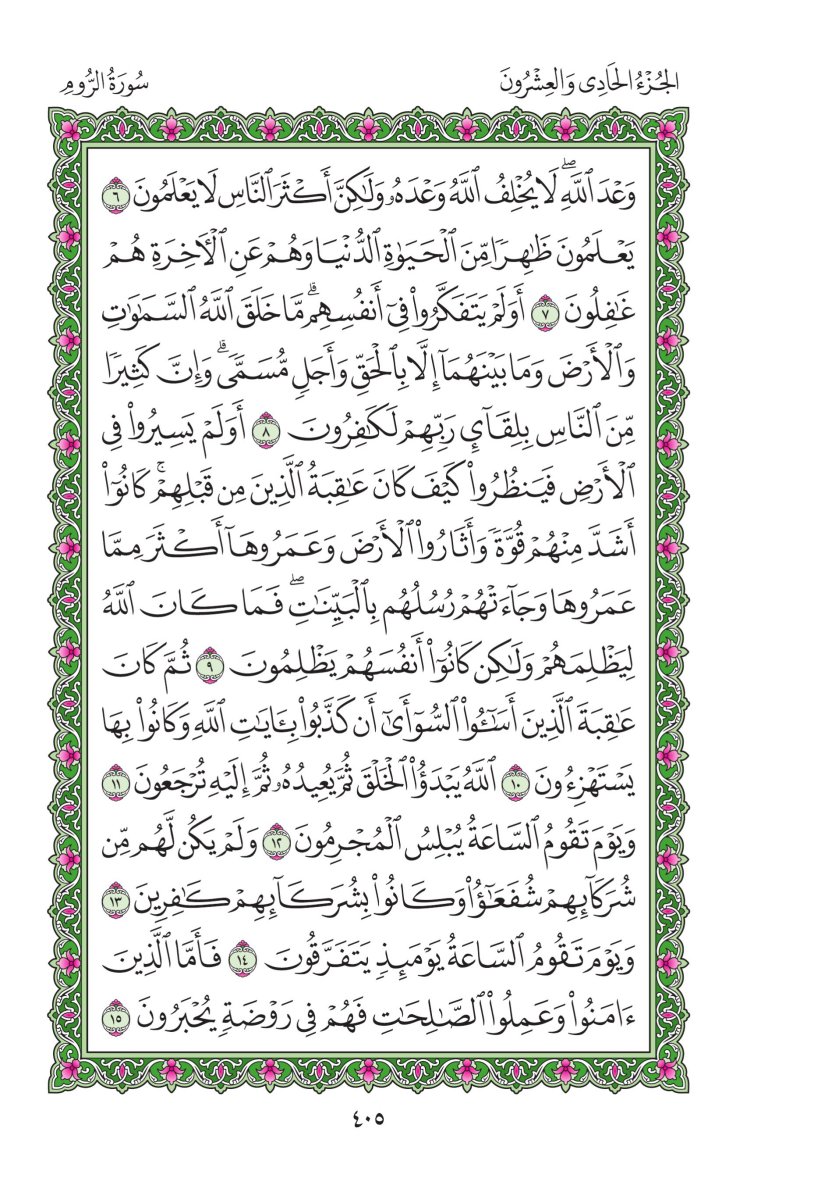 الجُزْءُ الحَادِى وَالعِشْرُونَ
سُورَةُ الرُّومِ
وَعْدَ ٱللَّهِۖ لَا يُخْلِفُ ٱللَّهُ وَعْدَهُۥ وَلَٰكِنَّ أَكْثَرَ ٱلنَّاسِ لَا يَعْلَمُونَ ٦
يَعْلَمُونَ ظَٰهِرًا مِّنَ ٱلْحَيَوٰةِ ٱلدُّنْيَا وَهُمْ عَنِ ٱلْأٓخِرَةِ هُمْ
غَٰفِلُونَ ٧ أَوَلَمْ يَتَفَكَّرُوا۟ فِىٓ أَنفُسِهِمۗ مَّا خَلَقَ ٱللَّهُ ٱلسَّمَٰوَٰتِ
وَٱلْأَرْضَ وَمَا بَيْنَهُمَآ إِلَّا بِٱلْحَقِّ وَأَجَلٍ مُّسَمًّىۗ وَإِنَّ كَثِيرًا
مِّنَ ٱلنَّاسِ بِلِقَآئِ رَبِّهِمْ لَكَٰفِرُونَ ٨ أَوَلَمْ يَسِيرُوا۟ فِى
ٱلْأَرْضِ فَيَنظُرُوا۟ كَيْفَ كَانَ عَٰقِبَةُ ٱلَّذِينَ مِن قَبْلِهِمْۚ كَانُوٓا۟
أَشَدَّ مِنْهُمْ قُوَّةً وَأَثَارُوا۟ ٱلْأَرْضَ وَعَمَرُوهَآ أَكْثَرَ مِمَّا
عَمَرُوهَا وَجَآءَتْهُمْ رُسُلُهُم بِٱلْبَيِّنَٰتِۖ فَمَا كَانَ ٱللَّهُ
لِيَظْلِمَهُمْ وَلَٰكِن كَانُوٓا۟ أَنفُسَهُمْ يَظْلِمُونَ ٩ ثُمَّ كَانَ
عَٰقِبَةَ ٱلَّذِينَ أَسَٰٓـُٔوا۟ ٱلسُّوٓأَىٰٓ أَن كَذَّبُوا۟ بِـَٔايَٰتِ ٱللَّهِ وَكَانُوا۟ بِهَا
يَسْتَهْزِءُونَ ١٠ ٱللَّهُ يَبْدَؤُا۟ ٱلْخَلْقَ ثُمَّ يُعِيدُهُۥ ثُمَّ إِلَيْهِ تُرْجَعُونَ ١١
وَيَوْمَ تَقُومُ ٱلسَّاعَةُ يُبْلِسُ ٱلْمُجْرِمُونَ ١٢ وَلَمْ يَكُن لَّهُم مِّن
شُرَكَآئِهِمْ شُفَعَٰٓؤُا۟ وَكَانُوا۟ بِشُرَكَآئِهِمْ كَٰفِرِينَ ١٣
وَيَوْمَ تَقُومُ ٱلسَّاعَةُ يَوْمَئِذٍ يَتَفَرَّقُونَ ١٤ فَأَمَّا ٱلَّذِينَ
ءَامَنُوا۟ وَعَمِلُوا۟ ٱلصَّٰلِحَٰتِ فَهُمْ فِى رَوْضَةٍ يُحْبَرُونَ ١٥
٤٠٥